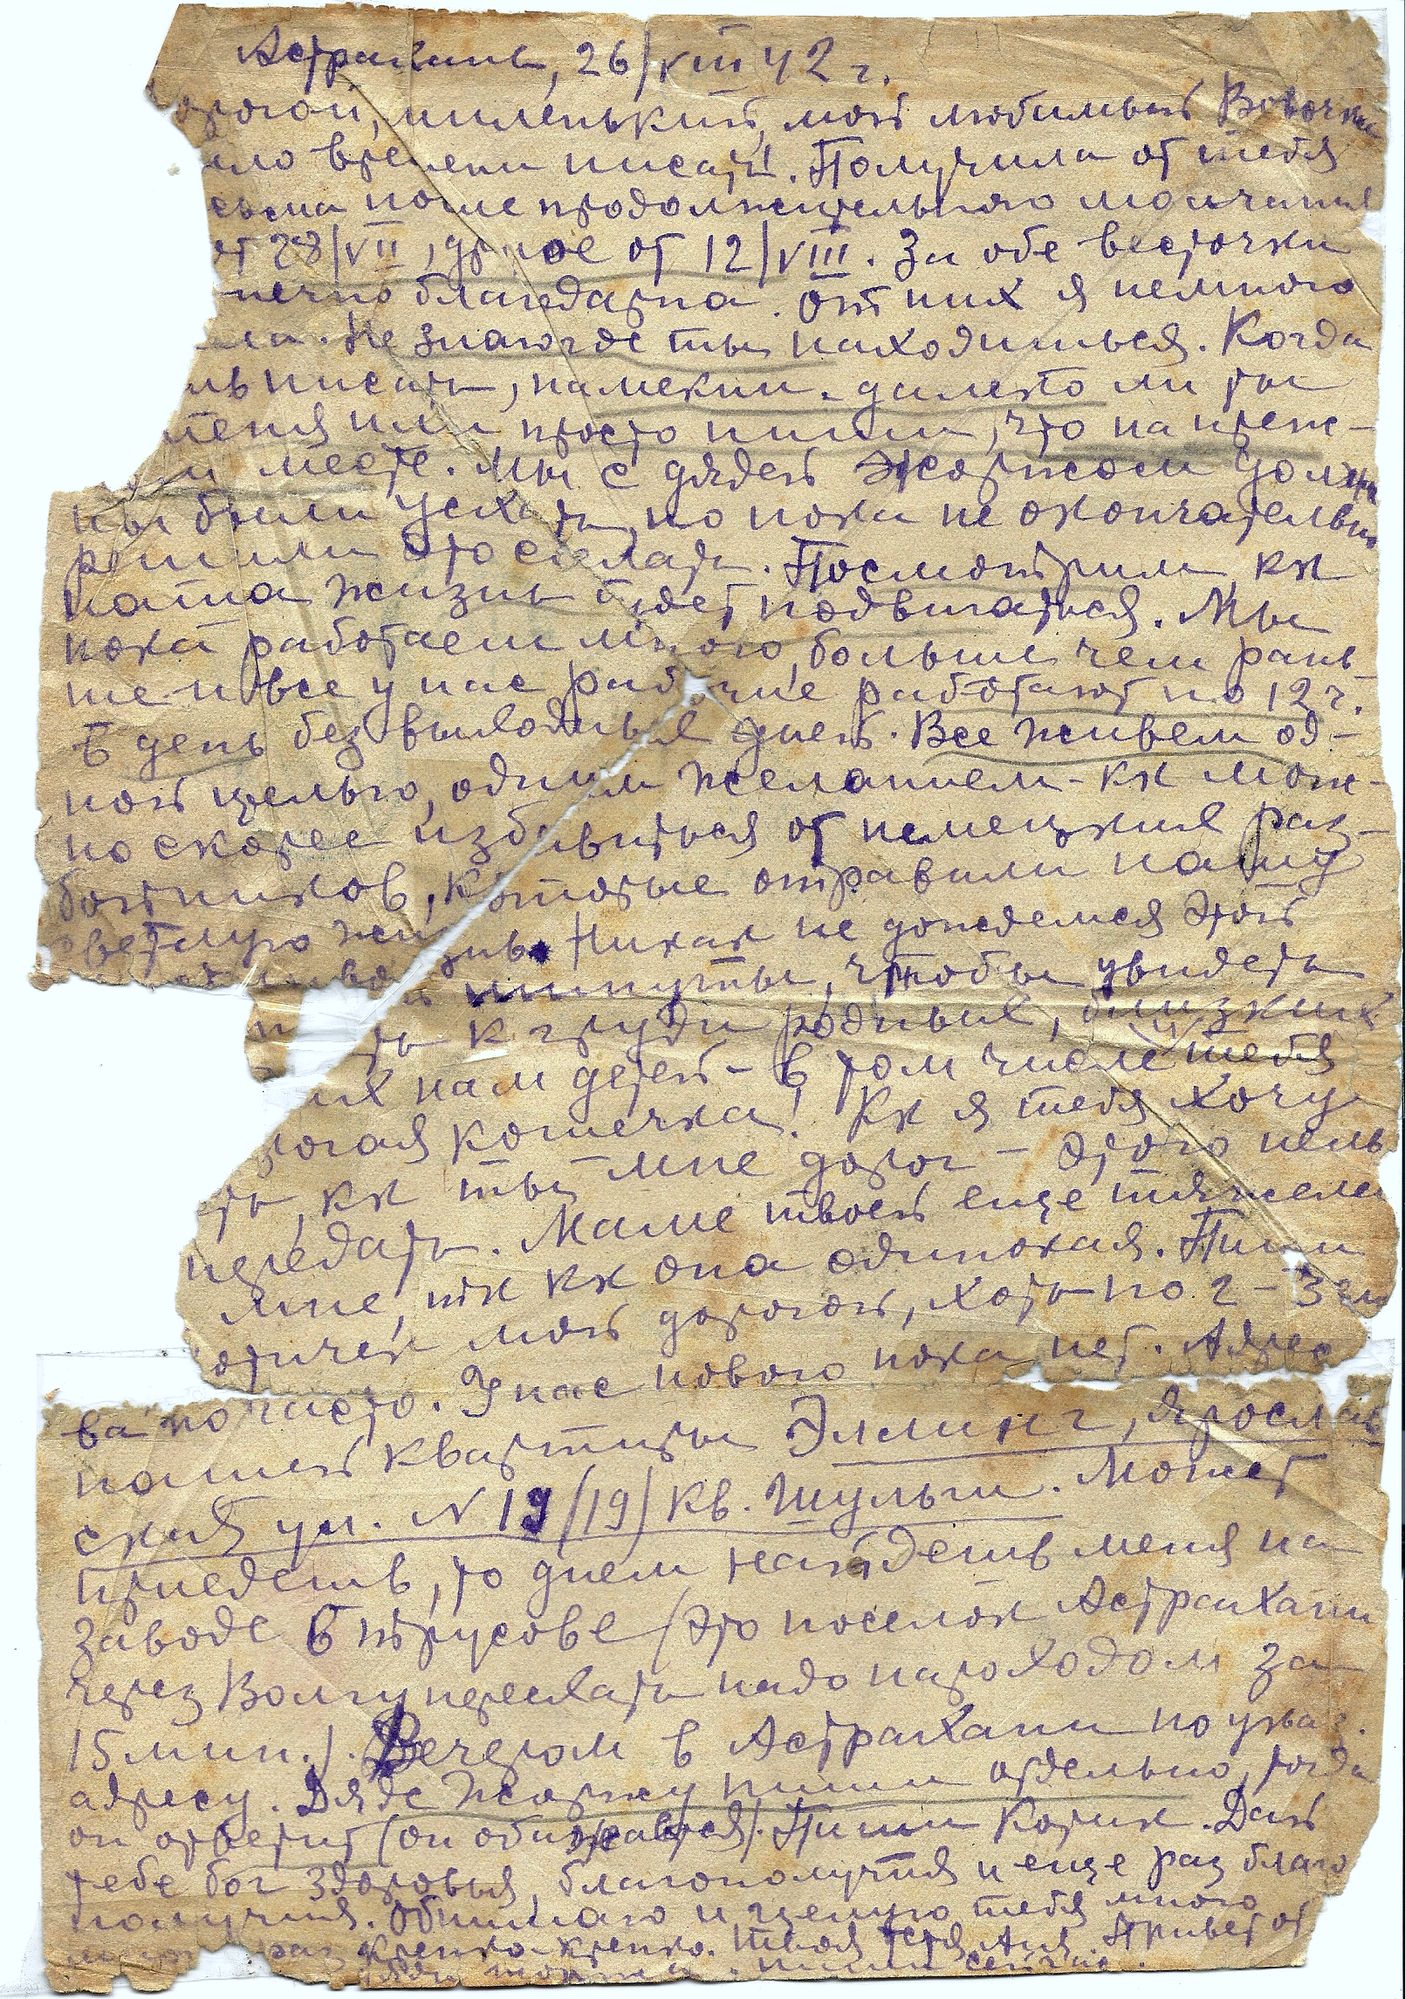 Астрахань, 26/VIII 42 г.
орогой, миленький, мой любимый Вовочка
ло времени писать. Получила от тебя
сьма после продолжительного молчания
от 28/VII, другое от 12/VIII. За обе весточки
нечно благодарна. От них я немного
ла. Не знаю где ты находишься. Когда
шь писать, намекни далеко ли ты
меня или просто пиши, что на преж-
м месте. Мы с дядей Жоржом долж
ны были уехать, но пока не окончательно
решили это сделать. Посмотрим, кк
наша жизнь будет подвигаться. Мы
пока работаем много, больше чем рань
ше и все у нас рабочие работают по 12 ч.
в день без выходных дней. Все живем од-
ной целью, одним желанием - кк мож-
но скорее избавиться от немецких раз-
бойников, которые отравили нашу
светлую жизнь. Никак не дождемся этой
минуты, чтобы увидеть
ть к груди родных, близких
их нам детей - в том числе и тебя
рогая кошечка. Кк я тебя хочу
ть, кк ты мне дорог - этого нель
передать. Маме твоей еще тяжелее
мне, тк кк она одинокая. Пиши
отичек мой дорогой, хоть по 2-3 сло
ва но часто. У нас нового пока нет. Адрес
нашей квартиры Эллинг, Ярослав
ская ул. N 19 (19) кв. Шульги. Может
приедешь, то днем найдешь меня на
заводе в Трусове (это поселок Астрахани
через Волгу переехать надо пароходом за
15 мин.). Вечером в Астрахани по указ.
адресу. Дяде Жоржу пиши отдельно, тогда
он ответит (он обижается). Пиши Котик. Дай
тебе бог здоровья, благополучия и еще раз благо
получия. Обнимаю и целую тебя много
раз крепко-крепко. Твоя тетя Аня. Привет от